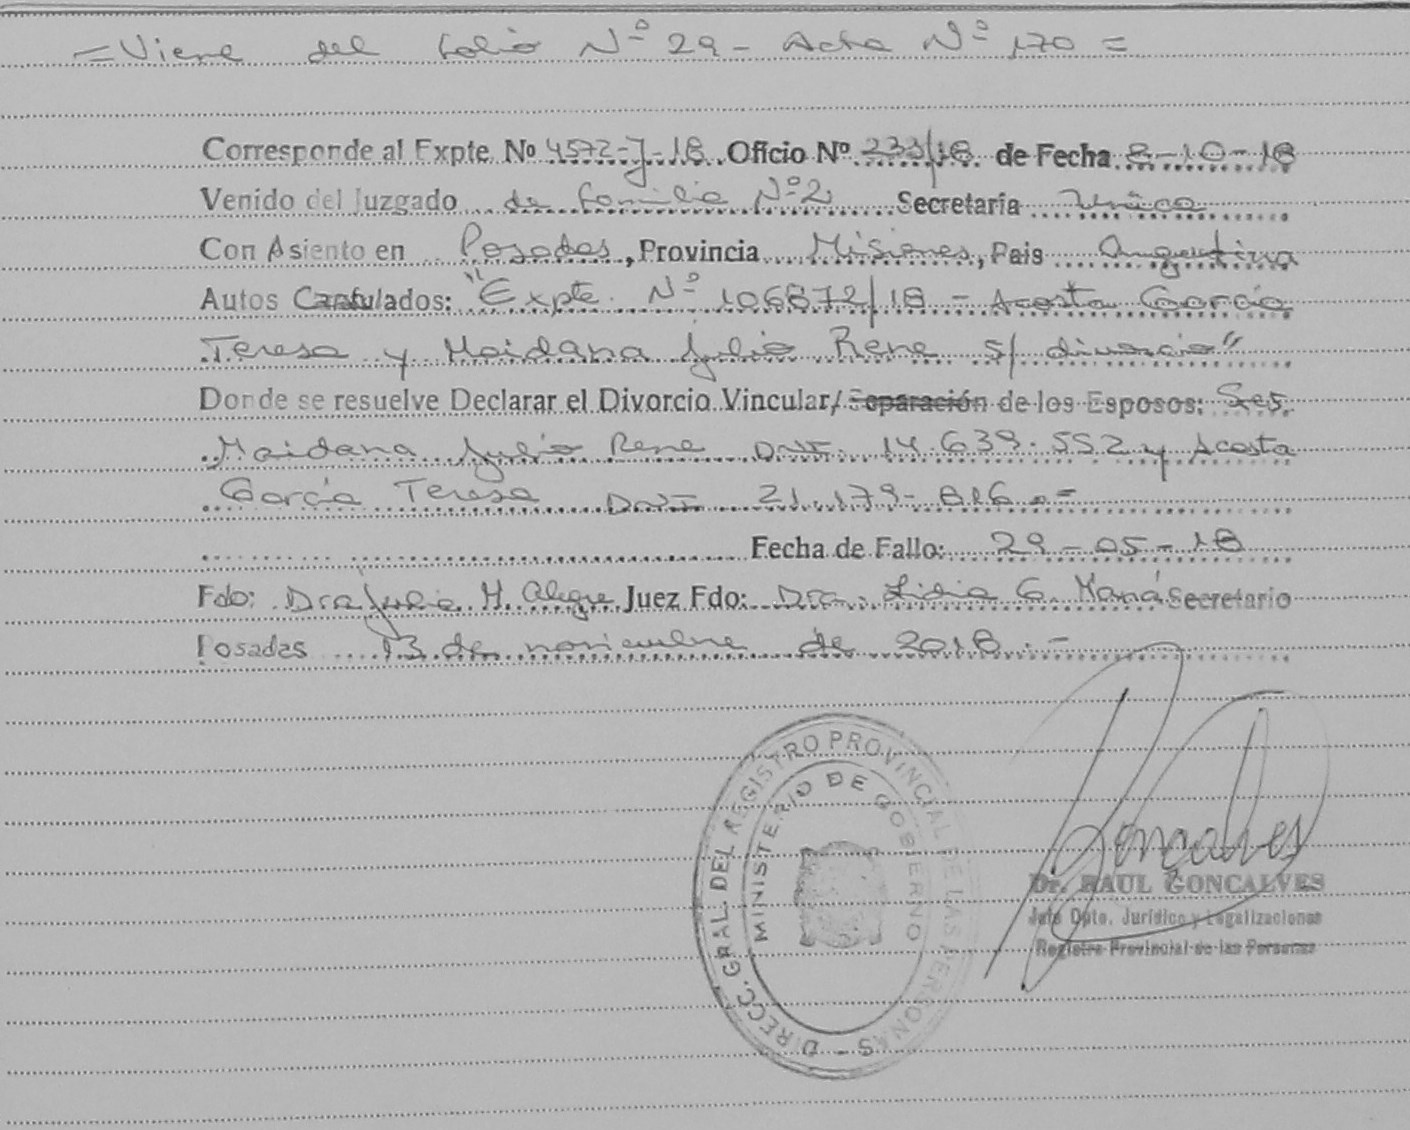 = Viene del folio Nº 29 - Acta Nº 170 =
Corresponde al Expte. Nº 4572-J-18 Oficio Nº 233/18 de Fecha 8-10-18
Venido del Juzgado de familia Nº 2 Secretaria Única
Con Asiento en Posadas, Provincia Misiones, Pais Argentina
Autos Caratulados: "Expte. Nº 106872/18 - Acosta García
Teresa y Maidana Julio Rene s/ divorcio"
Donde se resuelve Declarar el Divorcio Vincular/ Separación de los Esposos: Sres.
Maidana Julio Rene DNI. 14.639.552 y Acosta
García Teresa DNI 21.179.816.-=
Fecha de Fallo: 29-05-18
Fdo: Dra Julia H. Alegre Juez Fdo: Dra. Lidia G. Maná Secretario
Posadas 13 de noviembre de 2018.-
DIRECC. GRAL. DEL REGISTRO PROVINCIAL DE LAS PERSONAS -
MINISTERIO DE GOBIERNO
Goncalves
Dr. RAUL GONCALVES
Jefe Dpto. Jurídico y Legalizaciones
Registro Provincial de las Personas